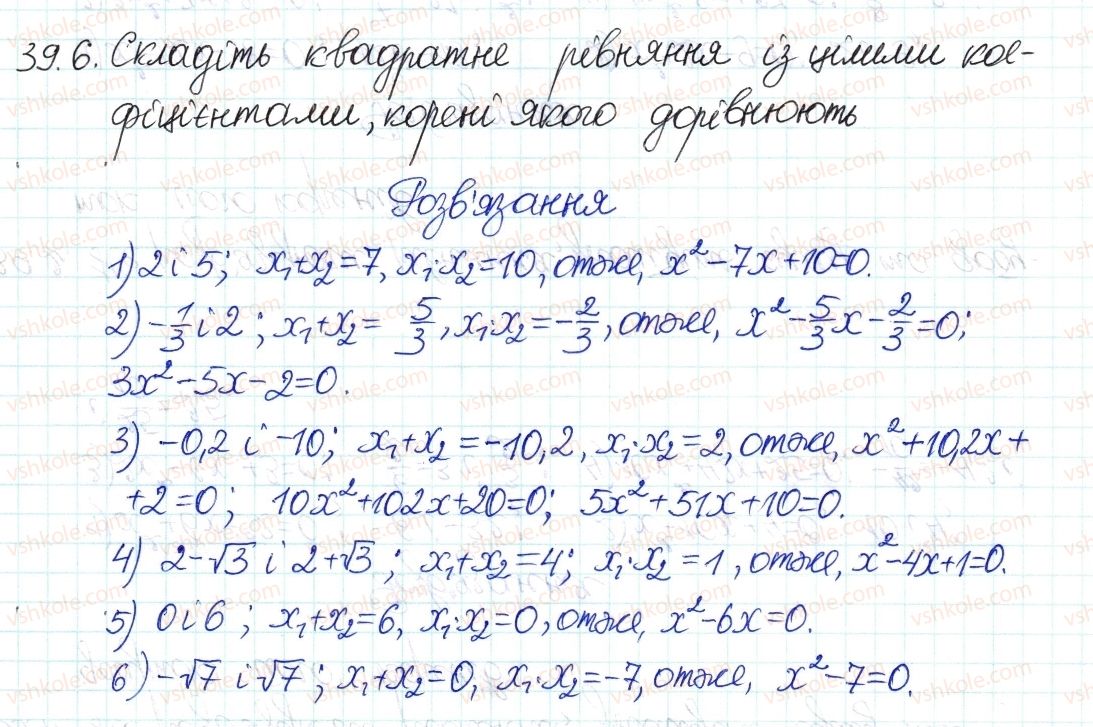 39.6. Складіть квадратне рівняння із цілими кое-
фіцієнтами, корені якого дорівнюють
Розв'язання
1) 2 і 5; x₁+x₂=7, x₁·x₂=10, отже, x²-7x+10=0.
2) -1/3 і 2; x₁+x₂= 5/3, x₁·x₂=-2/3, отже, x²-5/3x-2/3=0;
3x²-5x-2=0.
3) -0,2 і -10; x₁+x₂=-10,2, x₁·x₂=2, отже, x²+10,2x+
+2=0; 10x²+102x+20=0; 5x²+51x+10=0.
4) 2-√3 і 2+√3; x₁+x₂=4; x₁·x₂=1, отже, x²-4x+1=0.
5) 0 і 6; x₁+x₂=6, x₁·x₂=0, отже, x²-6x=0.
6) -√7 і √7; x₁+x₂=0, x₁·x₂=-7, отже, x²-7=0.